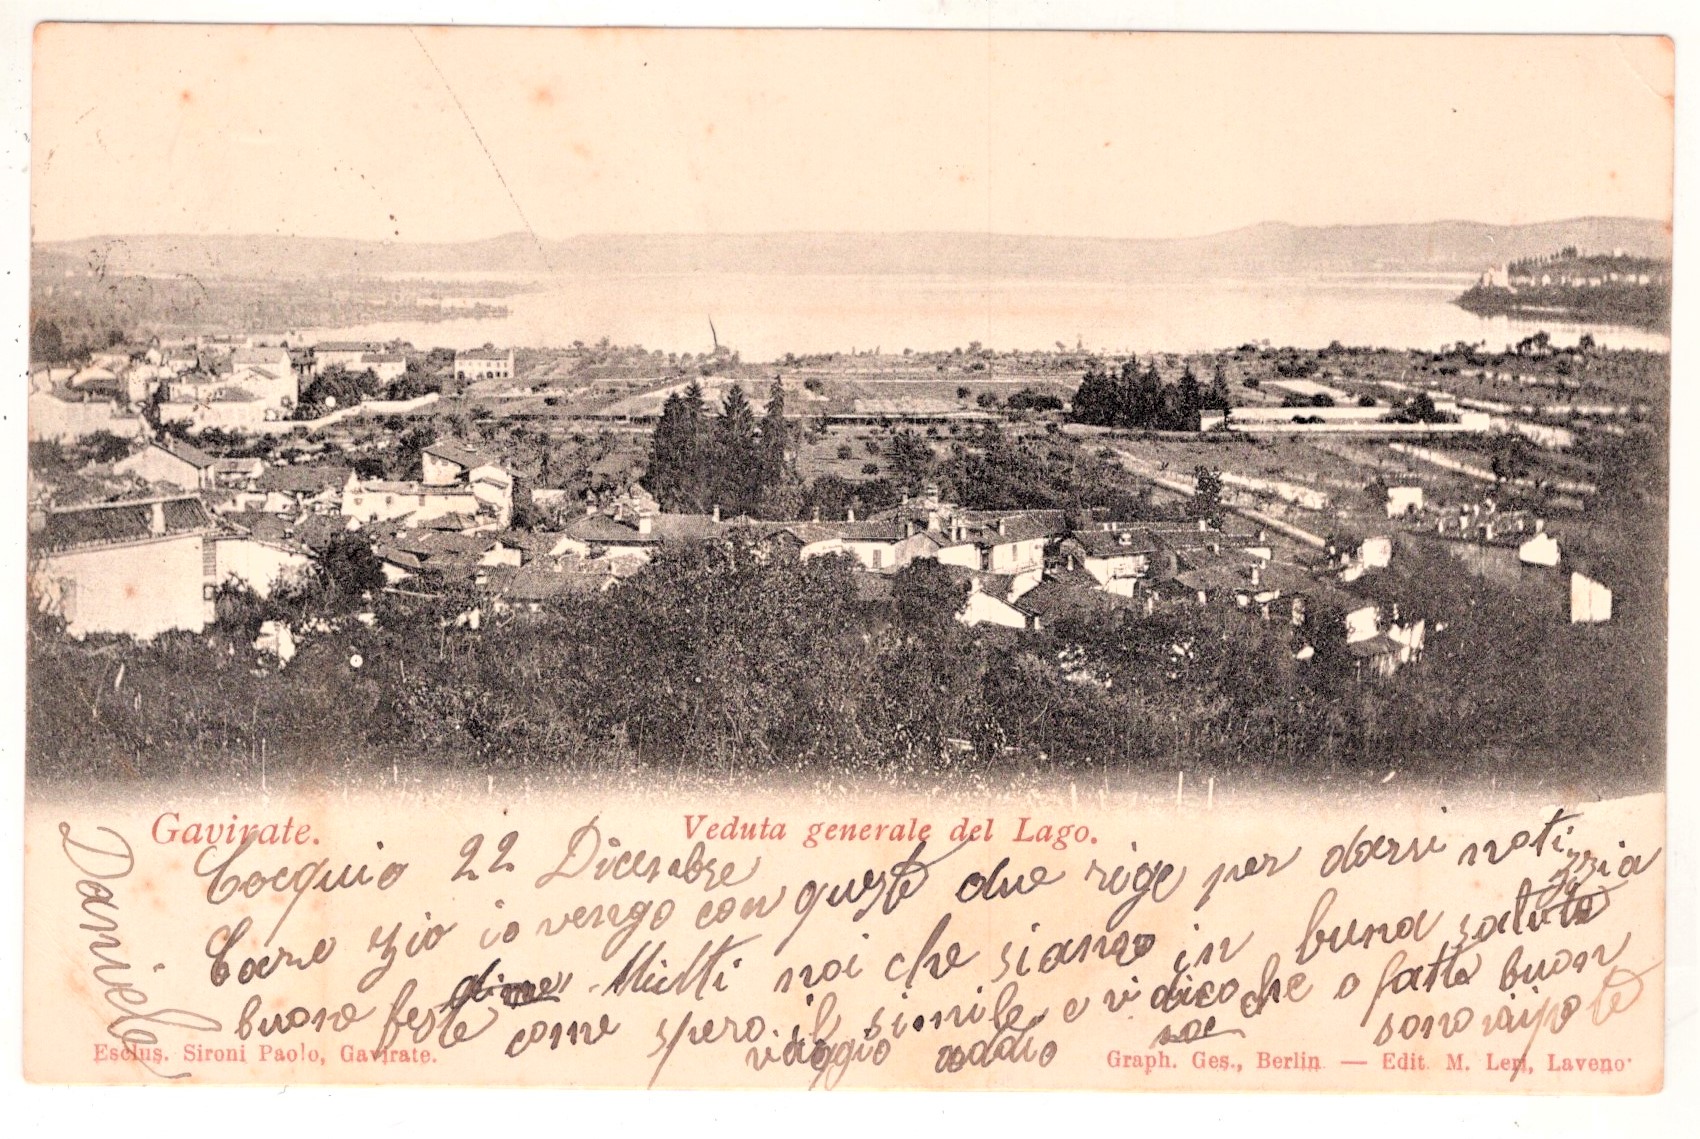 Gavirate.
Veduta generale del Lago.
Cocquio 22 Dicembre
Caro zio io vengo con queste due rige per darvi notizzia
buone feste di me Mitti noi che siamo in buna salute
come spero il simile e vi dico che o fatto buon
viaggio addio sono nipote
Daniele
Esclus. Sironi Paolo, Gavirate.
Graph. Ges., Berlin — Edit. M. Leri, Laveno